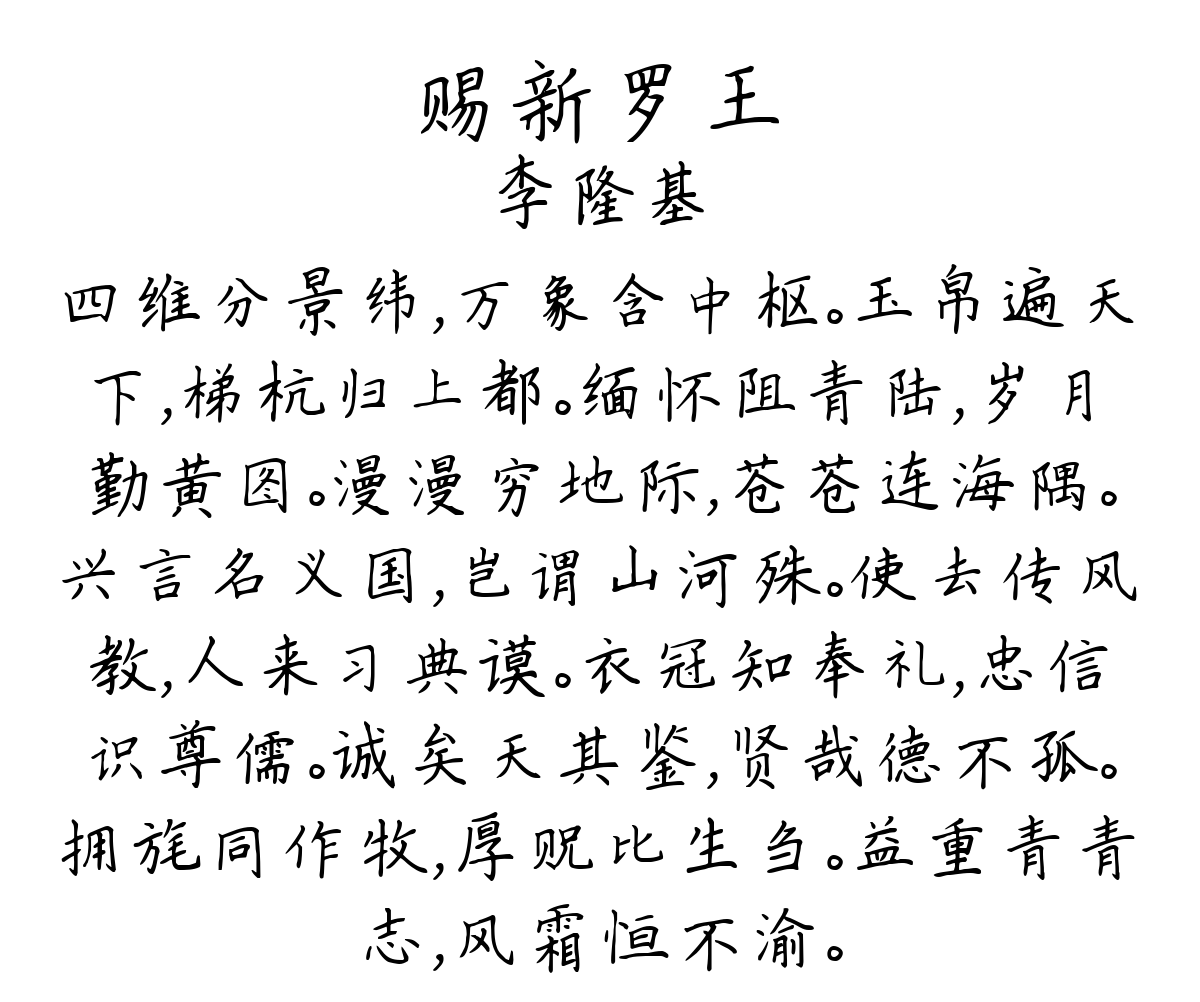 赐新罗王
李隆基
四维分景纬,万象含中枢。玉帛遍天
下,梯杭归上都。缅怀阻青陆,岁月
勤黄图。漫漫穷地际,苍苍连海隅。
兴言名义国,岂谓山河殊。使去传风
教,人来习典谟。衣冠知奉礼,忠信
识尊儒。诚矣天其鉴,贤哉德不孤。
拥旄同作牧,厚贶比生刍。益重青青
志,风霜恒不渝。